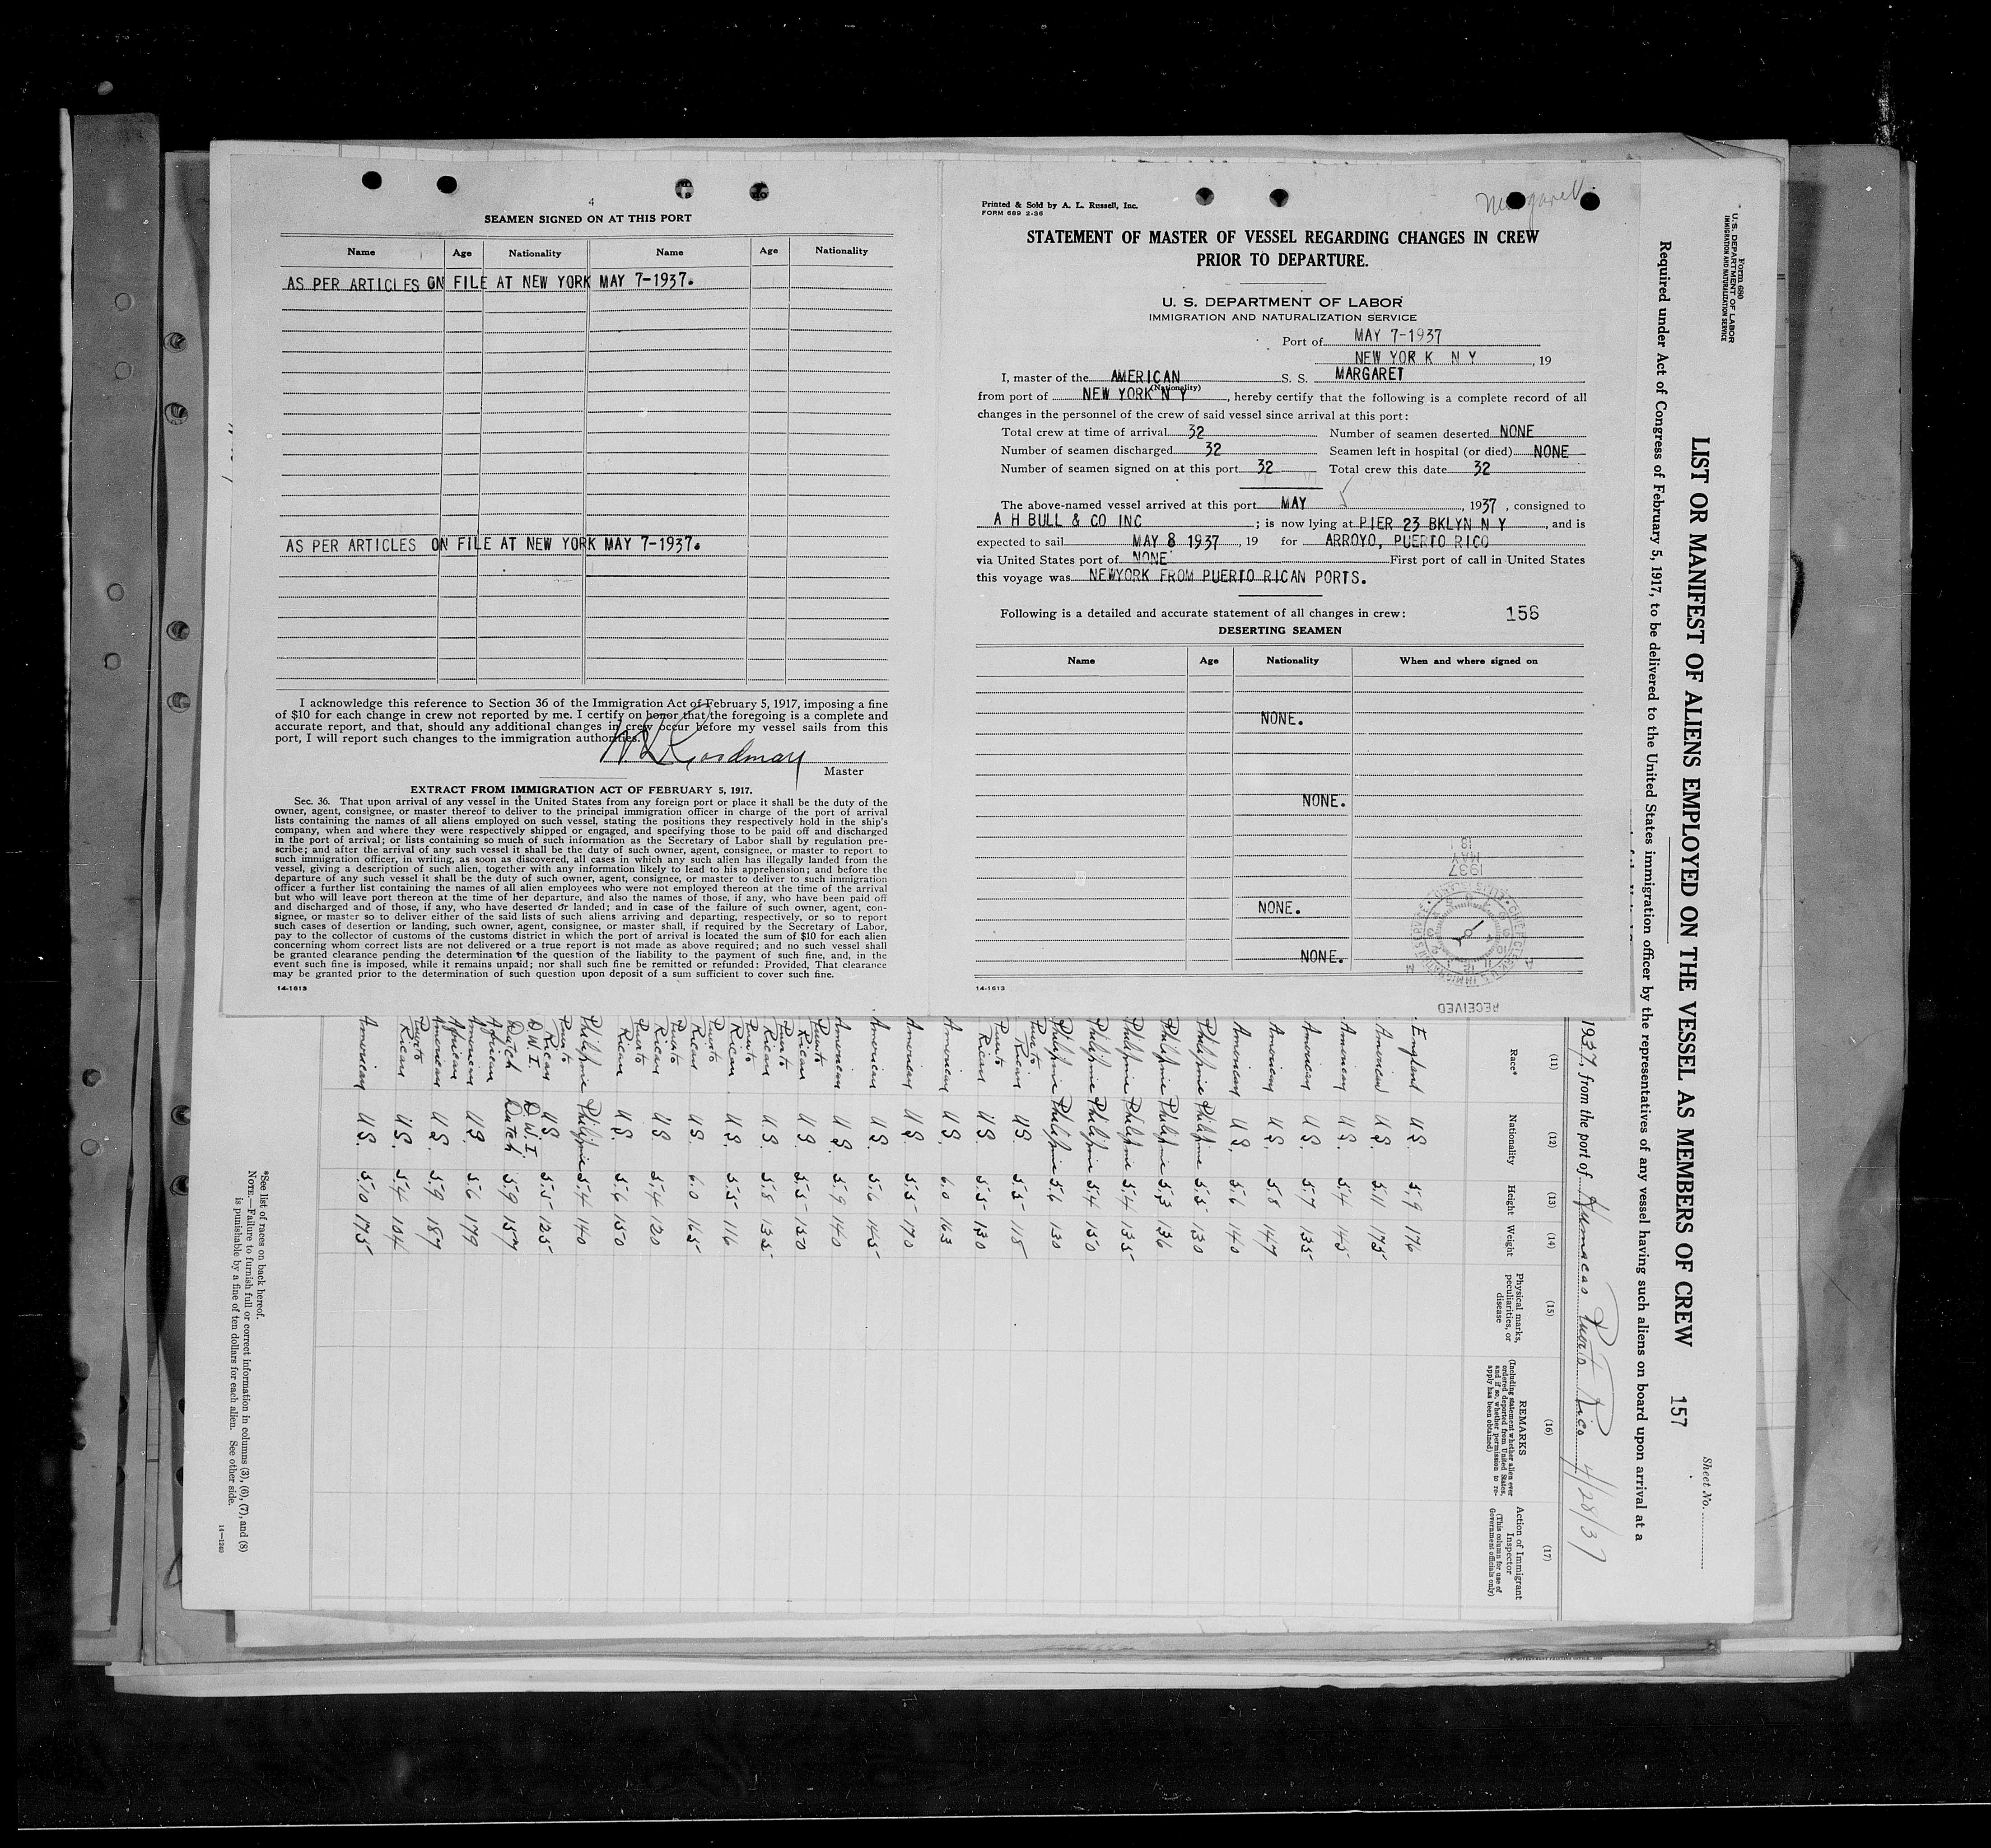 4
SEAMEN SIGNED ON AT THIS PORT
Name Age Nationality Name Age Nationality
AS PER ARTICLES ON FILE AT NEW YORK MAY 7-1937.
AS PER ARTICLES ON FILE AT NEW YORK MAY 7-1937.
I acknowledge this reference to Section 36 of the Immigration Act of February 5, 1917, imposing a fine
of $10 for each change in crew not reported by me. I certify on honor that the foregoing is a complete and
accurate report, and that, should any additional changes in crew occur before my vessel sails from this
port, I will report such changes to the immigration authorities.
Goodman
Master
EXTRACT FROM IMMIGRATION ACT OF FEBRUARY 5, 1917.
Sec. 36. That upon arrival of any vessel in the United States from any foreign port or place it shall be the duty of the
owner, agent, consignee, or master thereof to deliver to the principal immigration officer in charge of the port of arrival
lists containing the names of all aliens employed on such vessel, stating the positions they respectively hold in the ship's
company, when and where they were respectively shipped or engaged, and specifying those to be paid off and discharged
in the port of arrival; or lists containing so much of such information as the Secretary of Labor shall by regulation pre-
scribe; and after the arrival of any such vessel it shall be the duty of such owner, agent, consignee, or master to report to
such immigration officer, in writing, as soon as discovered, all cases in which any such alien has illegally landed from the
vessel, giving a description of such alien, together with any information likely to lead to his apprehension; and before the
departure of any such vessel it shall be the duty of such owner, agent, consignee, or master to deliver to such immigration
officer a further list containing the names of all alien employees who were not employed thereon at the time of the arrival
but who will leave port thereon at the time of her departure, and also the names of those, if any, who have been paid off
and discharged and of those, if any, who have deserted or landed; and in case of the failure of such owner, agent, con-
signee, or master so to deliver either of the said lists of such aliens arriving and departing, respectively, or so to report
such cases of desertion or landing, such owner, agent, consignee, or master shall, if required by the Secretary of Labor,
pay to the collector of customs of the customs district in which the port of arrival is located the sum of $10 for each alien
concerning whom correct lists are not delivered or a true report is not made as above required; and no such vessel shall
be granted clearance pending the determination of the question of the liability to the payment of such fine, and, in the
event such fine is imposed, while it remains unpaid; nor shall such fine be remitted or refunded: Provided, That clearance
may be granted prior to the determination of such question upon deposit of a sum sufficient to cover such fine.
14-1613
Margaret
Printed & Sold by A. L. Russell, Inc.
FORM 689 2-36
STATEMENT OF MASTER OF VESSEL REGARDING CHANGES IN CREW
PRIOR TO DEPARTURE.
U. S. DEPARTMENT OF LABOR
IMMIGRATION AND NATURALIZATION SERVICE
Port of MAY 7-1937
NEW YORK N Y , 19
I, master of the AMERICAN S. S. MARGARET
(Nationality)
from port of NEW YORK N Y , hereby certify that the following is a complete record of all
changes in the personnel of the crew of said vessel since arrival at this port:
Total crew at time of arrival 32 Number of seamen deserted NONE
Number of seamen discharged 32 Seamen left in hospital (or died) NONE
Number of seamen signed on at this port 32 Total crew this date 32
The above-named vessel arrived at this port MAY 5 , 1937 , consigned to
A H BULL & CO INC ; is now lying at PIER 23 BKLYN N Y , and is
expected to sail MAY 8 1937 , 19 for ARROYO, PUERTO RICO
via United States port of NONE First port of call in United States
this voyage was NEWYORK FROM PUERTO RICAN PORTS.
Following is a detailed and accurate statement of all changes in crew: 156
DESERTING SEAMEN
Name Age Nationality When and where signed on
NONE.
NONE.
NONE.
NONE.
1937
MAY
18
RECEIVED
14-1613
Form 680
U. S. DEPARTMENT OF LABOR
IMMIGRATION AND NATURALIZATION SERVICE
Sheet No.
LIST OR MANIFEST OF ALIENS EMPLOYED ON THE VESSEL AS MEMBERS OF CREW 157
Required under Act of Congress of February 5, 1917, to be delivered to the United States immigration officer by the representatives of any vessel having such aliens on board upon arrival at a
1937, from the port of Humacao Puerto Rico 4/28/37
(11) (12) (13) (14) (15) (16) (17)
Race* Nationality Height Weight Physical marks, peculiarities, or disease REMARKS (Including statement whether alien ever ordered deported from United States, and if so, whether permission to re-apply has been obtained) Action of Immigrant Inspector (This column for use of Government officials only)
England U.S. 5.9 176
American U.S. 5.11 175
American U.S. 5.4 145
American U.S. 5.7 135
American U.S. 5.8 147
American U.S. 5.6 140
Philipine Philipine 5.5 130
Philipine Philipine 5.3 136
Philipine Philipine 5.4 135
Philipine Philipine 5.4 150
Philipine Philipine 5.6 130
Puerto Rican U.S. 5.5 118
Puerto Rican U.S. 5.5 130
American U.S. 6.0 163
American U.S. 5.5 170
American U.S. 5.6 145
American U.S. 5.9 140
Puerto Rican U.S. 5.5 150
Puerto Rican U.S. 5.8 135
Puerto Rican U.S. 5.5 116
Puerto Rican U.S. 6.0 165
Puerto Rican U.S. 5.4 120
Puerto Rican U.S. 5.6 150
Philipine Philipine 5.4 140
Puerto Rican U.S. 5.5 125
D.W.I. D.W.I.
Dutch Dutch 5.9 157
African American U.S. 5.6 179
African American U.S. 5.9 189
Puerto Rican U.S. 5.4 104
American U.S. 5.10 175
*See list of races on back hereof.
NOTE.—Failure to furnish full or correct information in columns (3), (6), (7), and (8)
is punishable by a fine of ten dollars for each alien. See other side.
14—1240